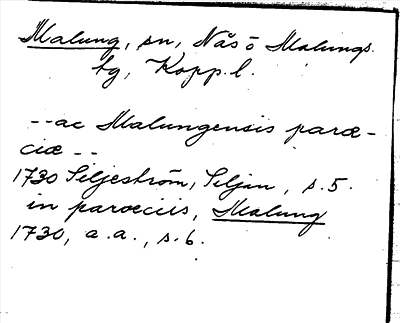 Malung, sn, Nås o Malungs
tg, Kopp. l.
-- ac Malungensis paræ-
ciæ --
1730 Siljeström, Siljan, s. 5.
in parœciis, Malung
1730, a.a., s. 6.